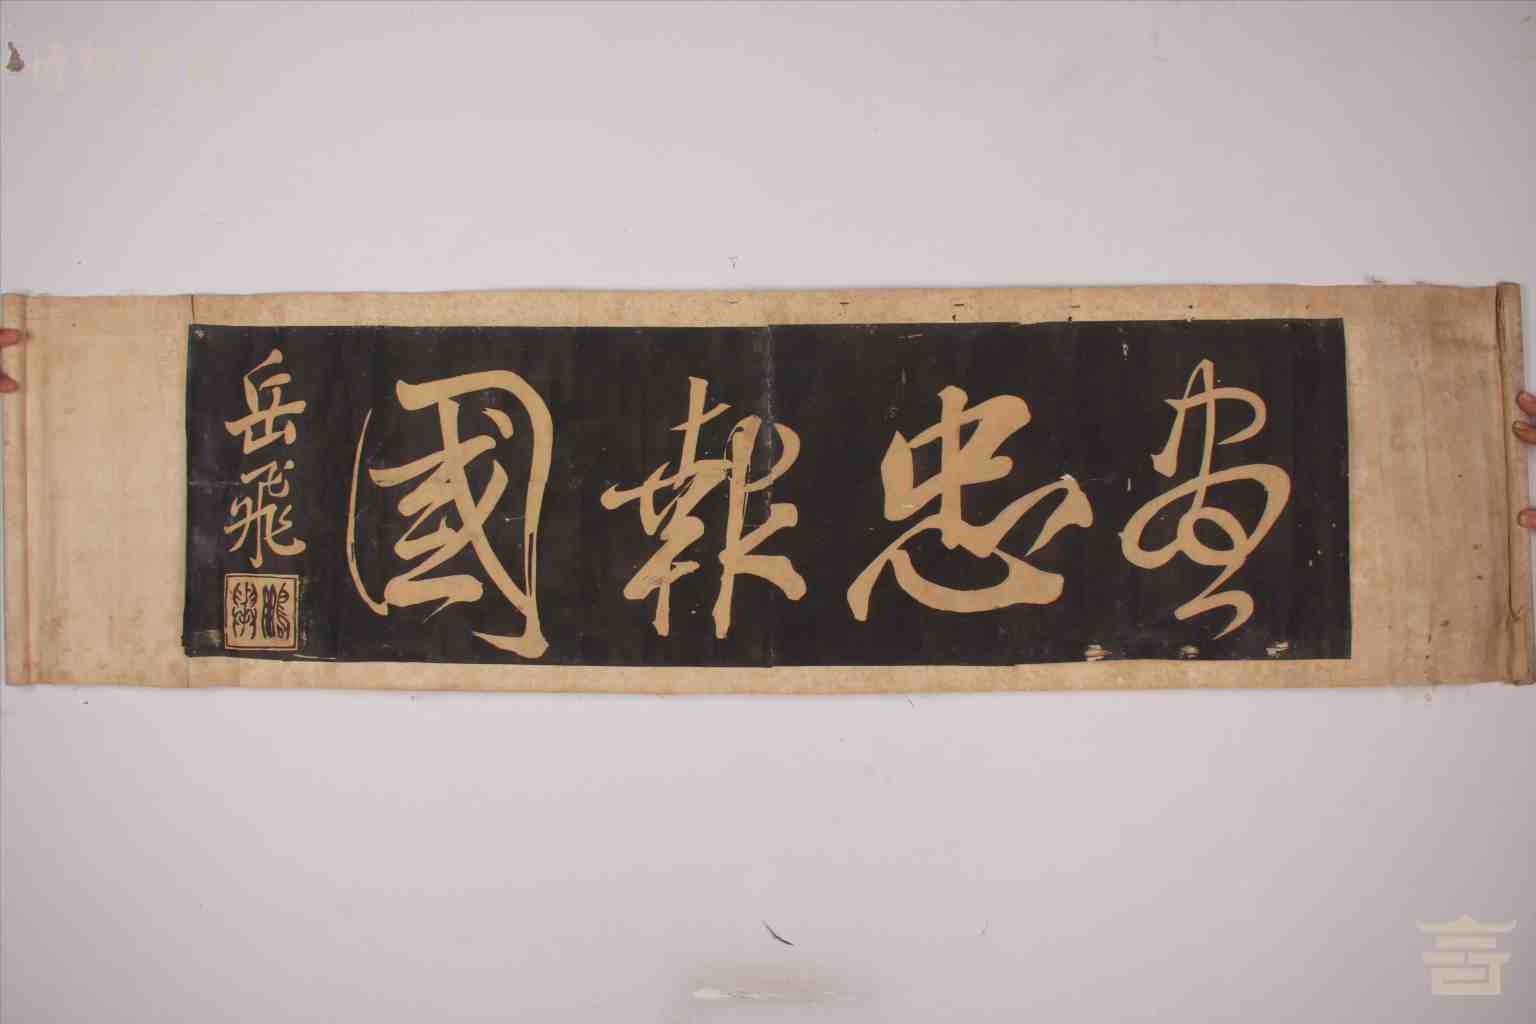 盡忠報國
岳飛
鵬舉